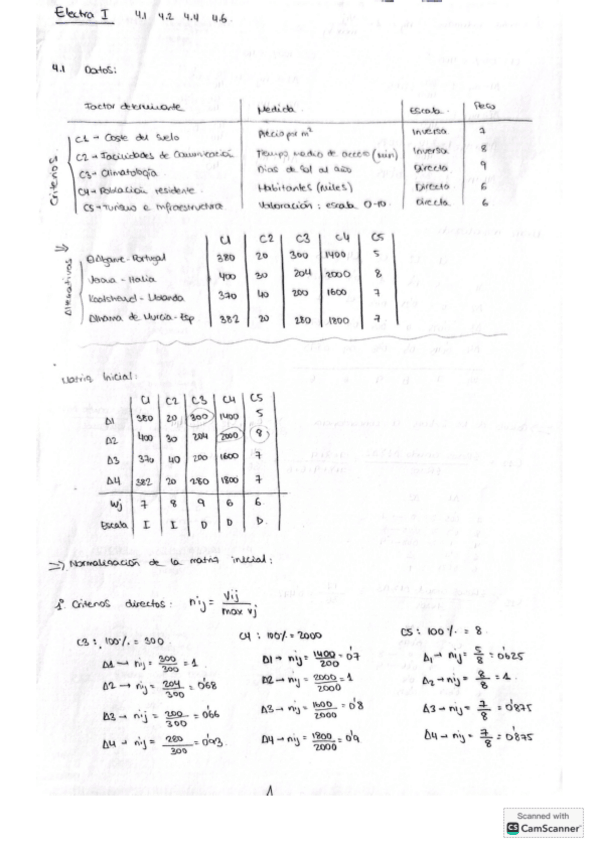 Electra I 4.1 4.2 4.4 4.6
4.1 Datos:
Factor determinante Medida Escala Peso
Criterios
C1 → Coste del suelo Precio por m² Inversa 7
C2 → Facilidades de comunicación Tiempo medio de acceso (min) Inversa 8
C3 → Climatología Dias de sol al año Directa 9
C4 → Población residente Habitantes (miles) Directa 6
C5 → Turismo e infraestructura Valoración: escala 0-10 directa 6
Alternativas
C1 C2 C3 C4 C5
- Portugal 380 20 300 1400 5
- Italia 400 30 204 2000 8
370 40 200 1600 7
Alhama de Murcia - Esp 382 20 280 1800 7
Matriz Inicial:
C1 C2 C3 C4 C5
Δ1 380 20 300 1400 5
Δ2 400 30 204 2000 8
Δ3 370 40 200 1600 7
Δ4 382 20 280 1800 7
Wj 7 8 9 6 6
Escala I I D D D
=> Normalización de la matriz inicial:
1º Criterios directos: nij = Vij / max vj
C3: 100% = 300 C4: 100% = 2000 C5: 100% = 8
Δ1 → nij = 300/300 = 1 Δ1 → nij = 1400/200 = 0'7 Δ1 → nij = 5/8 = 0'625
Δ2 → nij = 204/300 = 0'68 Δ2 → nij = 2000/2000 = 1 Δ2 → nij = 8/8 = 1
Δ3 → nij = 200/300 = 0'66 Δ3 → nij = 1600/2000 = 0'8 Δ3 → nij = 7/8 = 0'875
Δ4 → nij = 280/300 = 0'93 Δ4 → nij = 1800/2000 = 0'9 Δ4 → nij = 7/8 = 0'875
1
Scanned with
CS CamScanner